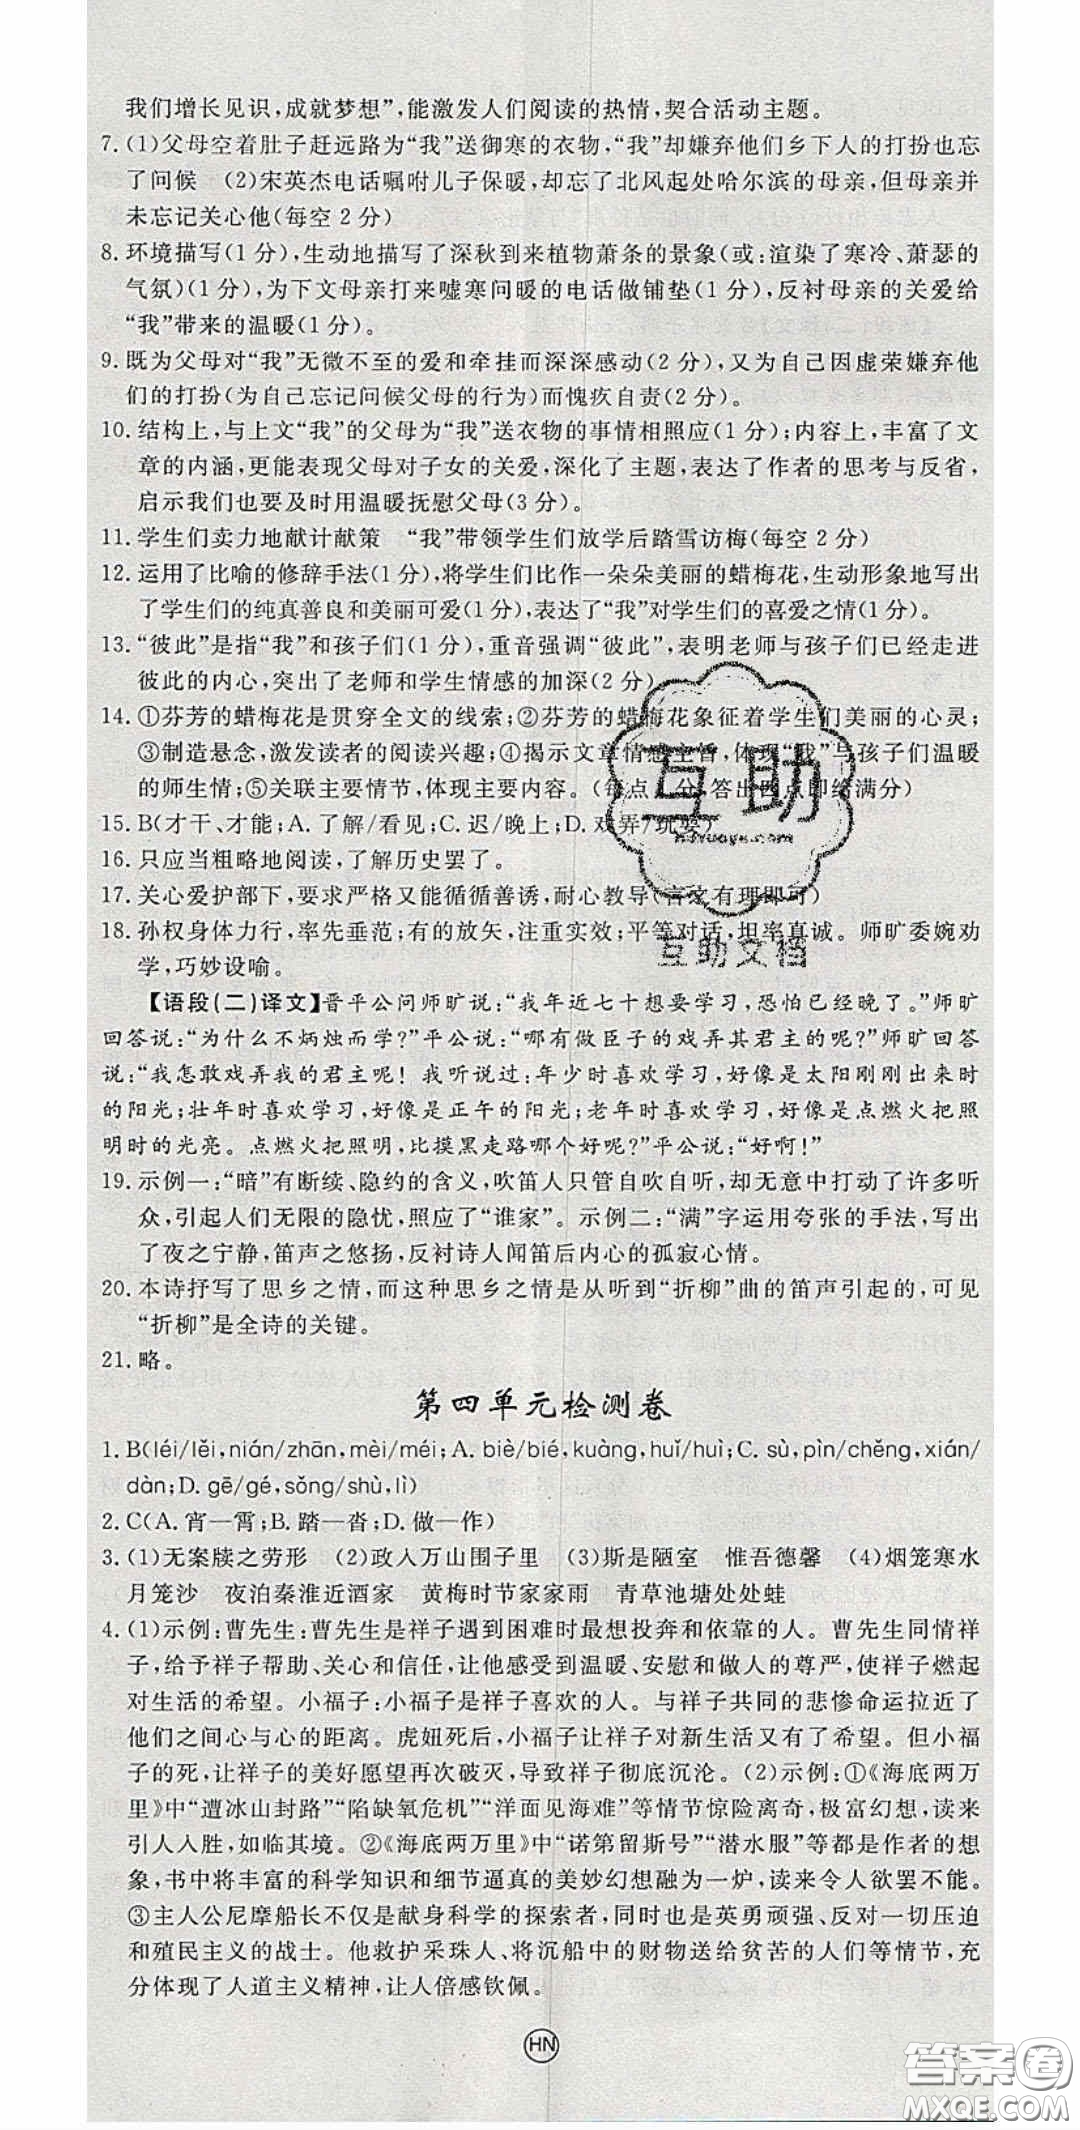 我们增长见识,成就梦想”,能激发人们阅读的热情,契合活动主题。
7.(1)父母空着肚子赶远路为“我”送御寒的衣物,“我”却嫌弃他们乡下人的打扮也忘
了问候 (2)宋英杰电话嘱咐儿子保暖,却忘了北风起处哈尔滨的母亲,但母亲并
未忘记关心他(每空2分)
8.环境描写(1分),生动地描写了深秋到来植物萧条的景象(或:渲染了寒冷、萧瑟的
气氛)(1分),为下文母亲打来嘘寒问暖的电话做铺垫(1分),反衬母亲的关爱给
“我”带来的温暖(1分)。
9.既为父母对“我”无微不至的爱和牵挂而深深感动(2分),又为自己因虚荣嫌弃他
们的打扮(为自己忘记问候父母的行为)而愧疚自责(2分)。
10.结构上,与上文“我”的父母为“我”送衣物的事情相照应(1分);内容上,丰富了文
章的内涵,更能表现父母对子女的关爱,深化了主题,表达了作者的思考与反省,
启示我们也要及时用温暖抚慰父母(3分)。
11.学生们卖力地献计献策 “我”带领学生们放学后踏雪访梅(每空2分)
12.运用了比喻的修辞手法(1分),将学生们比作一朵朵美丽的蜡梅花,生动形象地写出
了学生们的纯真善良和美丽可爱(1分),表达了“我”对学生们的喜爱之情(1分)。
13.“彼此”是指“我”和孩子们(1分),重音强调“彼此”,表明老师与孩子们已经走进
彼此的内心,突出了老师和学生情感的加深(2分)
14.①芬芳的蜡梅花是贯穿全文的线索;②芬芳的蜡梅花象征着学生们美丽的心灵;
③制造悬念,激发读者的阅读兴趣;④揭示文章情感主旨,体现“我”与孩子们温暖
的师生情;⑤关联主要情节,体现主要内容。(每点1分,答出四点即给满分)
15.B(才干、才能;A.了解/看见;C.迟/晚上;D.戏弄/玩耍)
16.只应当粗略地阅读,了解历史罢了。
17.关心爱护部下,要求严格又能循循善诱,耐心教导(言之有理即可)
18.孙权身体力行,率先垂范;有的放矢,注重实效;平等对话,坦率真诚。师旷委婉劝
学,巧妙设喻。
【语段(二)译文】晋平公问师旷说:“我年近七十想要学习,恐怕已经晚了。”师旷
回答说:“为什么不炳烛而学?”平公说:“哪有做臣子的戏弄其君主的呢?”师旷回答
说:“我怎敢戏弄我的君主呢!我听说过:年少时喜欢学习,好像是太阳刚刚出来时
的阳光;壮年时喜欢学习,好像是正午的阳光;老年时喜欢学习,好像是点燃火把照
明时的光亮。点燃火把照明,比摸黑走路哪个好呢?”平公说:“好啊!”
19.示例一:“暗”有断续、隐约的含义,吹笛人只管自吹自听,却无意中打动了许多听
众,引起人们无限的隐忧,照应了“谁家”。示例二:“满”字运用夸张的手法,写出
了夜之宁静,笛声之悠扬,反衬诗人闻笛后内心的孤寂心情。
20.本诗抒写了思乡之情,而这种思乡之情是从听到“折柳”曲的笛声引起的,可见
“折柳”是全诗的关键。
21.略。
第四单元检测卷
1.B(léi/lěi,nián/zhān,mèi/méi;A.biè/bié,kuàng,huǐ/huì;C.sù,pìn/chěng,xián/
dàn;D.gē/gé,sǒng/shù,lì)
2.C(A.宵—霄;B.踏—沓;D.做—作)
3.(1)无案牍之劳形 (2)政入万山围子里 (3)斯是陋室 惟吾德馨 (4)烟笼寒水
月笼沙 夜泊秦淮近酒家 黄梅时节家家雨 青草池塘处处蛙
4.(1)示例:曹先生:曹先生是祥子遇到困难时最想投奔和依靠的人。曹先生同情祥
子,给予祥子帮助、关心和信任,让他感受到温暖、安慰和做人的尊严,使祥子燃起
对生活的希望。小福子:小福子是祥子喜欢的人。与祥子共同的悲惨命运拉近了
他们之间心与心的距离。虎妞死后,小福子让祥子对新生活又有了希望。但小福
子的死,让祥子的美好愿望再次破灭,导致祥子彻底沉沦。(2)示例:①《海底两万
里》中“遭冰山封路”“陷缺氧危机”“洋面见海难”等情节惊险离奇,极富幻想,读来
引人入胜,如临其境。②《海底两万里》中“诺第留斯号”“潜水服”等都是作者的想
象,书中将丰富的科学知识和细节逼真的美妙幻想融为一炉,读来令人欲罢不能。
③主人公尼摩船长不仅是献身科学的探索者,同时也是英勇顽强、反对一切压迫
和殖民主义的战士。他救护采珠人、将沉船中的财物送给贫苦的人们等情节,充
分体现了人道主义精神,让人倍感钦佩。
HN
互助
互助文档
答案圈
MXQE.COM